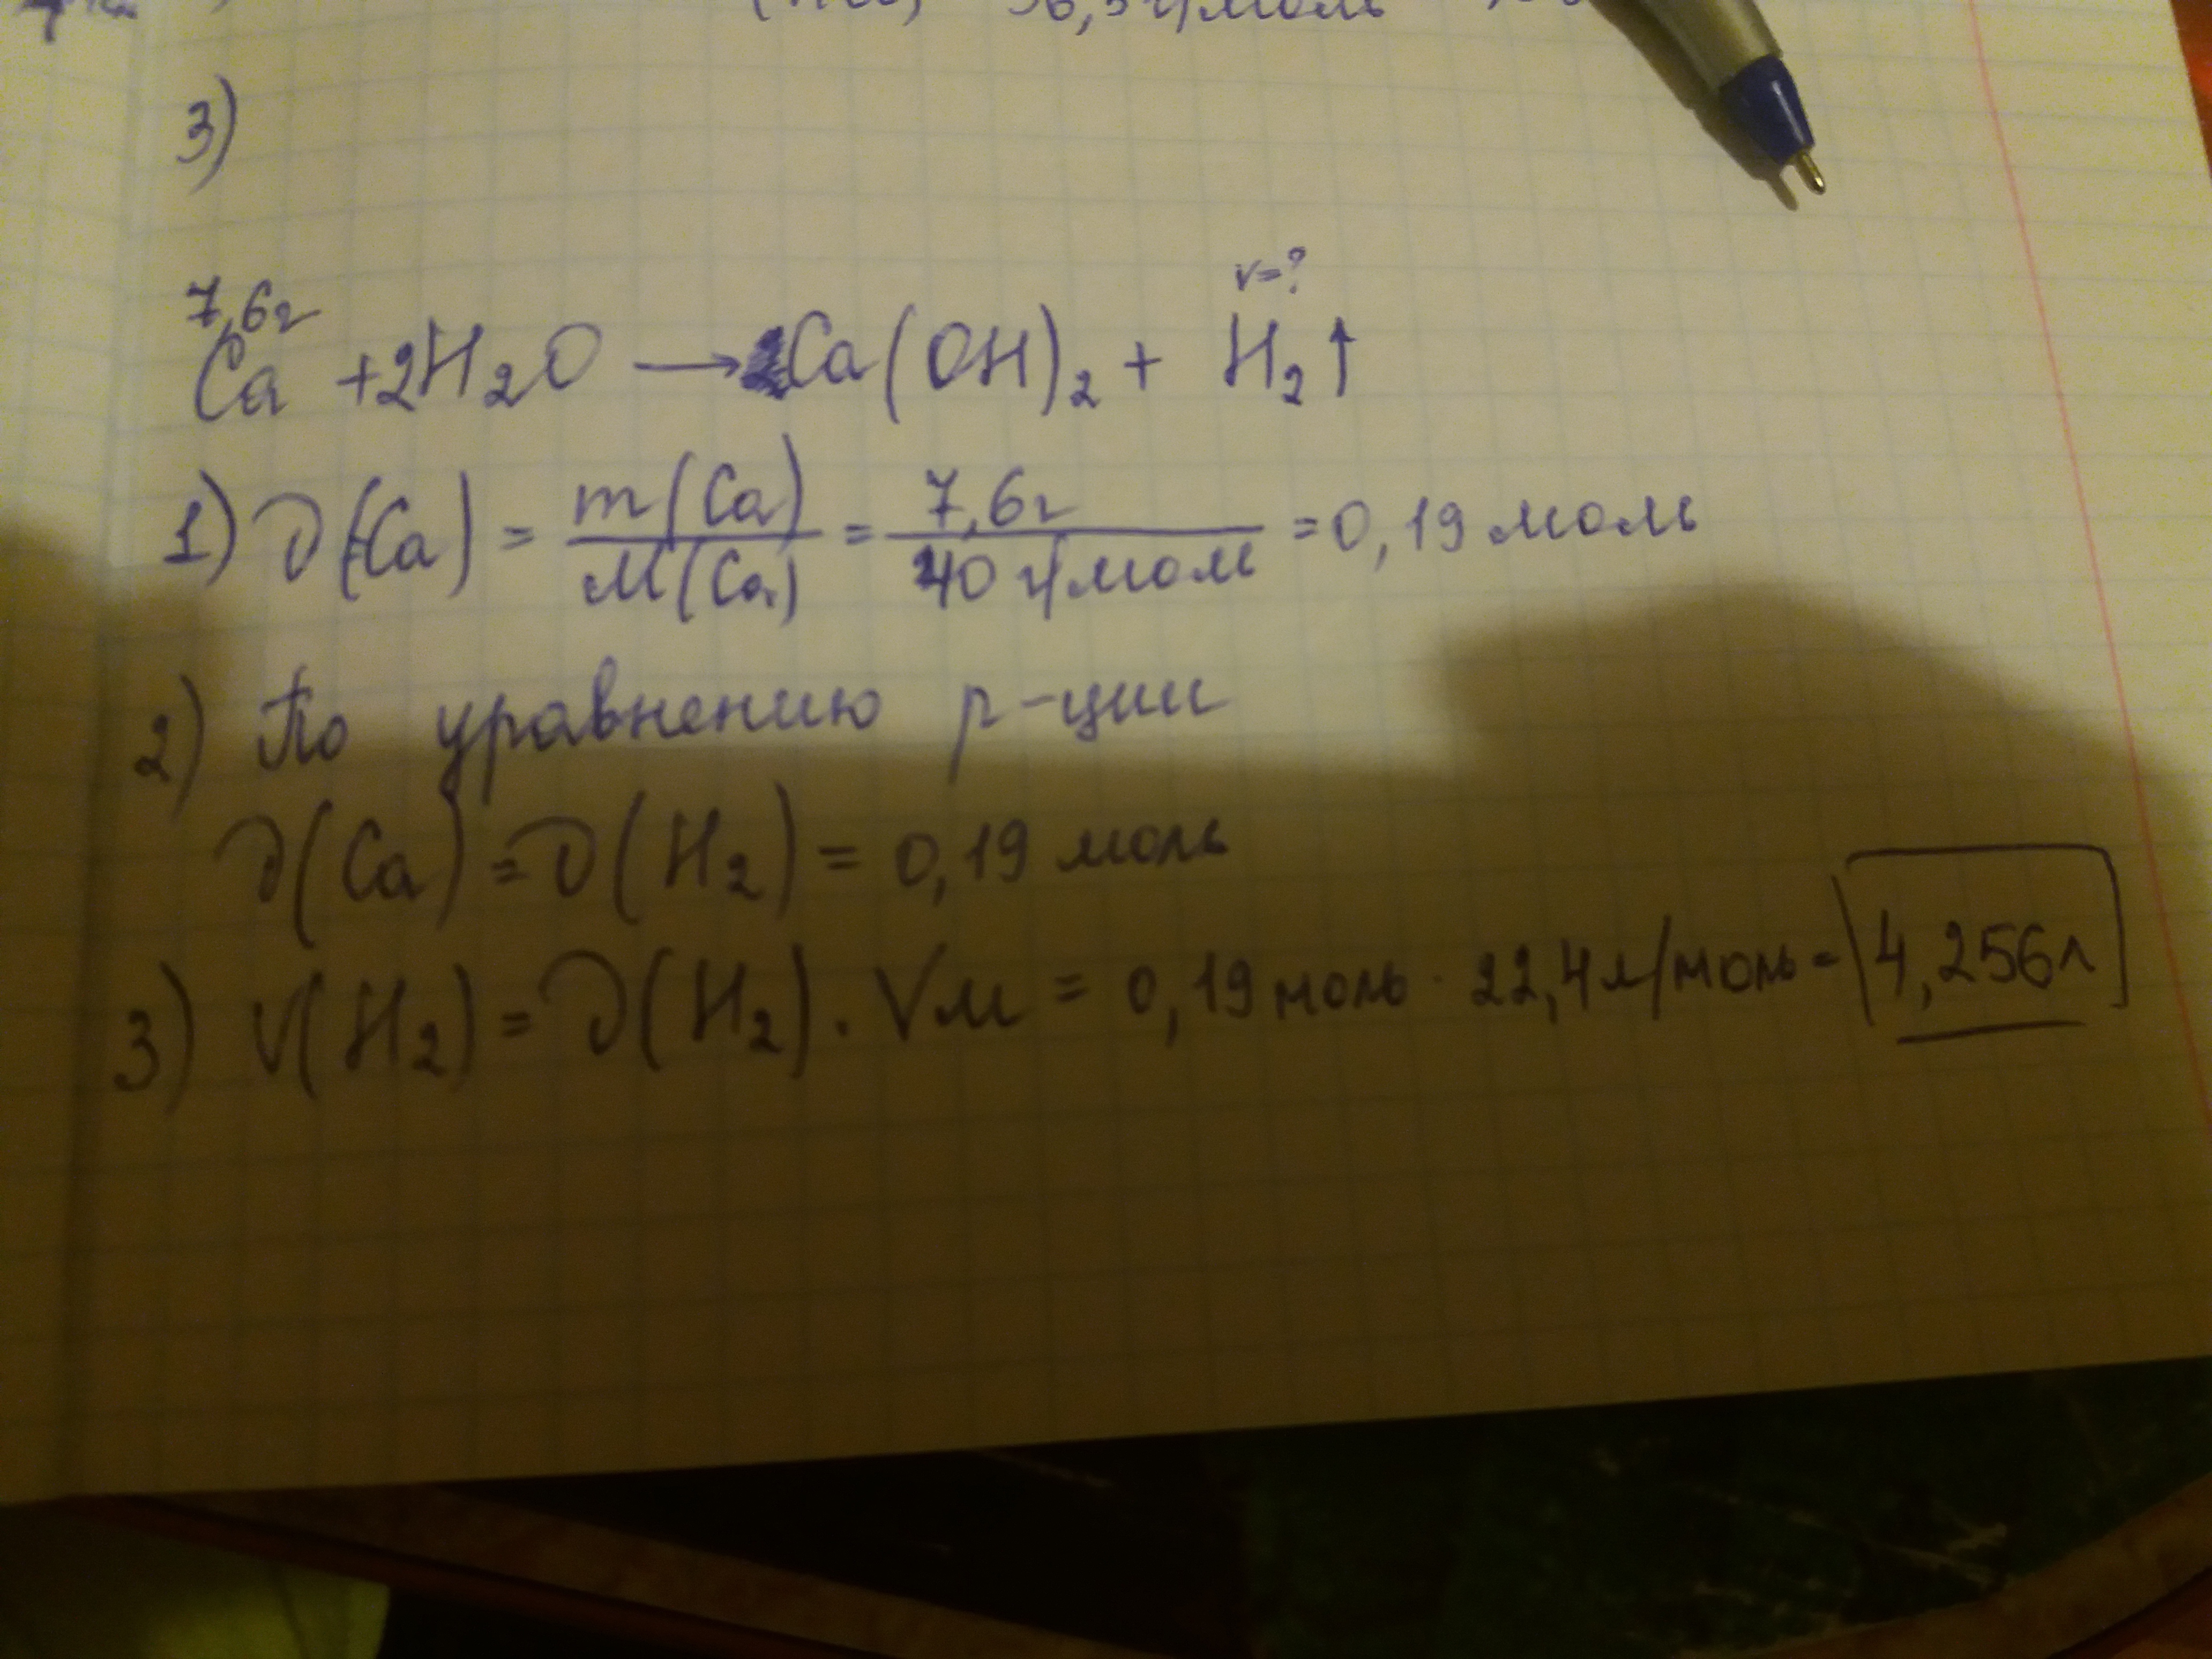 36,5 г/моль
3)
7,6г v=?
Ca +2H₂O → Ca(OH)₂ + H₂↑
1) ν(Ca) = m(Ca)/M(Ca) = 7,6г/40 г/моль = 0,19 моль
2) По уравнению р-ции
ν(Ca) = ν(H₂) = 0,19 моль
3) V(H₂) = ν(H₂) · Vм = 0,19 моль · 22,4 л/моль = 4,256л